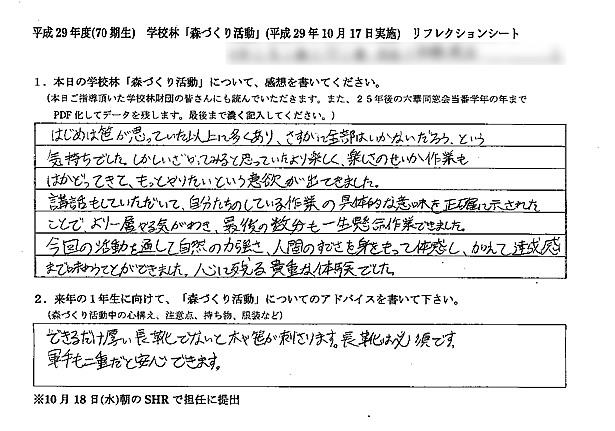 平成29年度(70期生) 学校林「森づくり活動」(平成29年10月17日実施) リフレクションシート
1．本日の学校林「森づくり活動」について、感想を書いてください。
(本日ご指導頂いた学校林財団の皆さんにも読んでいただきます。また、25年後の六華同窓会当番学年の年まで
PDF化してデータを残します。最後まで濃く記入してください。)
はじめは笹が思っていた以上に多くあり、さすがに全部はいかないだろう、という
気持ちでした。しかしいざやってみると思っていたより楽しく、楽しさのせいか作業も
はかどってきて、もっとやりたいという意欲が出てきました。
講話もしていただいて、自分たちのしている作業の具体的な意味を正確に示された
ことで、より一層やる気がわき、最後の数分も一生懸命作業できました。
今回の活動を通して自然の力強さ、人間のすごさを身をもって体感し、かえて達成感
まで味わうことができました。人心に残る貴重な体験でした。
2．来年の1年生に向けて、「森づくり活動」についてのアドバイスを書いて下さい。
(森づくり活動中の心構え、注意点、持ち物、服装など)
できるだけ厚い長靴でないと木や笹が刺さります。長靴は必須です。
軍手も二重だと安心できます。
※10月18日(水)朝のSHRで担任に提出